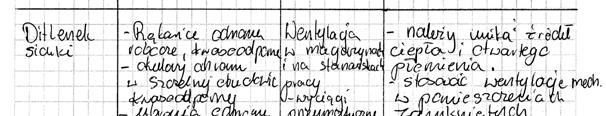 Ditlenek
siarki
- Rękawice ochronne
robocze, kwasoodporne
- okulary ochron.
w szczelnej obudowie
kwasoodpornej
- ubranie ochronne
Wentylacja
w magazynach
i na stanowiskach
pracy
- wyciągi
pneumatyczne
- należy unikać źródeł
ciepła i otwartego
płomienia.
- stosować wentylację mech.
w pomieszczeniach
zamkniętych